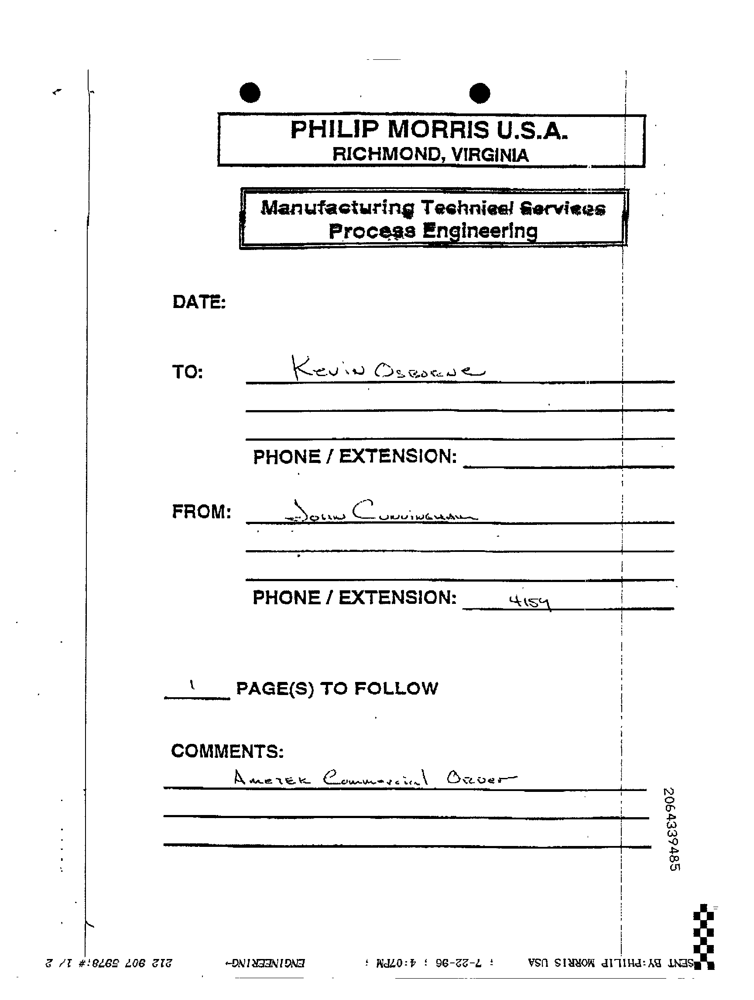 PHILIP MORRIS U.S.A.
RICHMOND, VIRGINIA
Manufacturing Technical Services
Process Engineering
DATE:
TO: Kevin Osborne
PHONE / EXTENSION:
FROM: John Cunningham
PHONE / EXTENSION: 4159
1 PAGE(S) TO FOLLOW
COMMENTS:
Ametek Commercial Order
2064339485
SENT BY:PHILIP MORRIS USA ; 7-22-96 ; 4:07PM ; ENGINEERING→ 212 907 5978:# 1/ 2